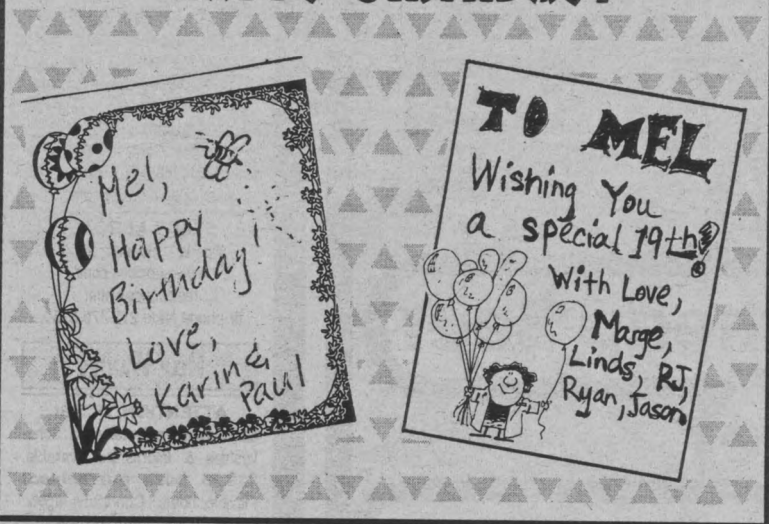 Mel,
Happy
Birthday!
Love,
Karin &
Paul
TO MEL
Wishing You
a special 19th!
With Love,
Marge,
Linds, RJ,
Ryan, Jason